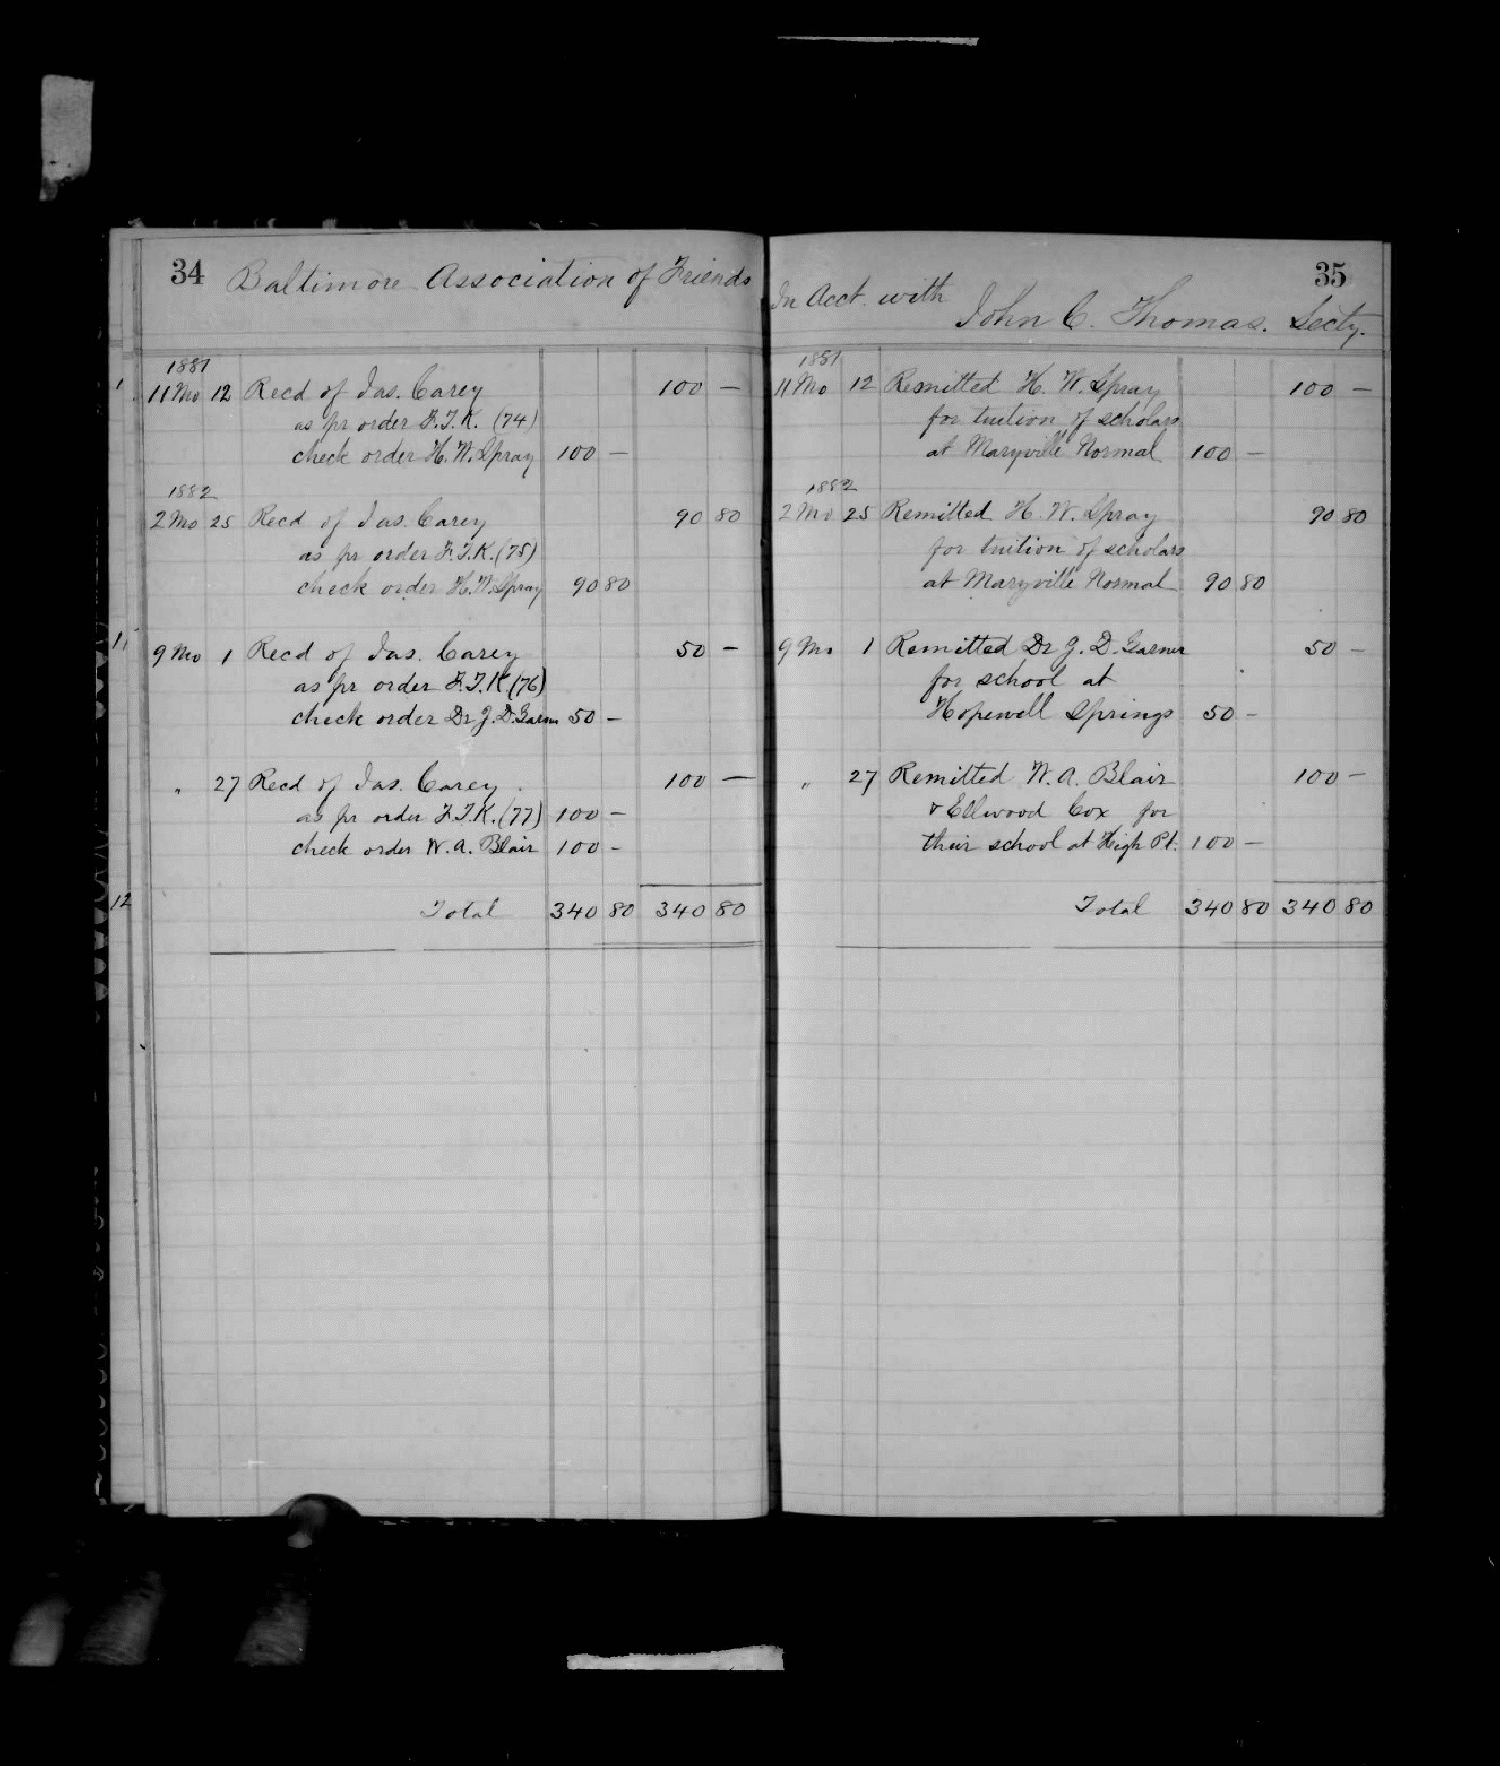 34 Baltimore Association of Friends
1881
11 Mo 12 Recd of Jas. Carey 100 —
as pr order F.T.K. (74)
check order H. W. Spray 100 —
1882
2 Mo 25 Recd of Jas. Carey 90 80
as pr order F.T.K. (75)
check order H.W. Spray 90 80
9 Mo 1 Recd of Jas. Carey 50 —
as pr order F.T.K. (76)
check order Dr J. D. Garner 50 —
" 27 Recd of Jas. Carey 100 —
as pr order F.T.K. (77) 100 —
check order W. A. Blair 100 —
Total 340 80 340 80
35
In Acct. with John C. Thomas. Secty.
1881
11 Mo 12 Remitted H. W. Spray 100 —
for tuition of scholars
at Maryville Normal 100 —
1882
2 Mo 25 Remitted H. W. Spray 90 80
for tuition of scholars
at Maryville Normal 90 80
9 Mo 1 Remitted Dr J. D. Garner 50 —
for school at
Hopewell Springs 50 —
" 27 Remitted W. A. Blair 100 —
& Ellwood Cox for
their school at High Pt. 100 —
Total 340 80 340 80